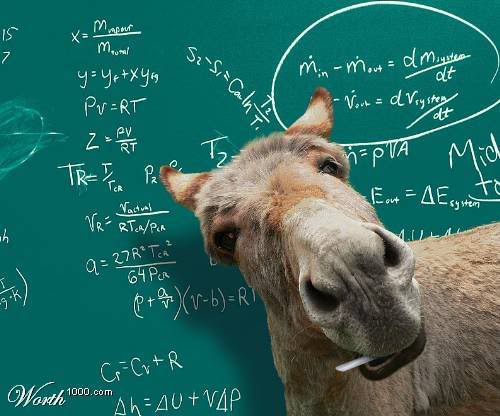 15
7
x = m_vapour / m_total
y = y_f + x y_fg
Pv = RT
Z = Pv / RT
T_R = T / T_CR
P_R
v_R = v_actual / (RT_CR/P_CR)
a = 27R² T_CR² / 64 P_CR
(P + a/v²)(v-b) = RT
C_P = C_V + R
Δh = ΔU + vΔP
S₂ - S₁ = C_av ln T₂ / T₁
T₂
ṁ_in - ṁ_out = dm_system / dt
- v̇_out = dv_system / dt
ṁ = ρVA
E_out = ΔE_system
Mid
t
Worth1000.com